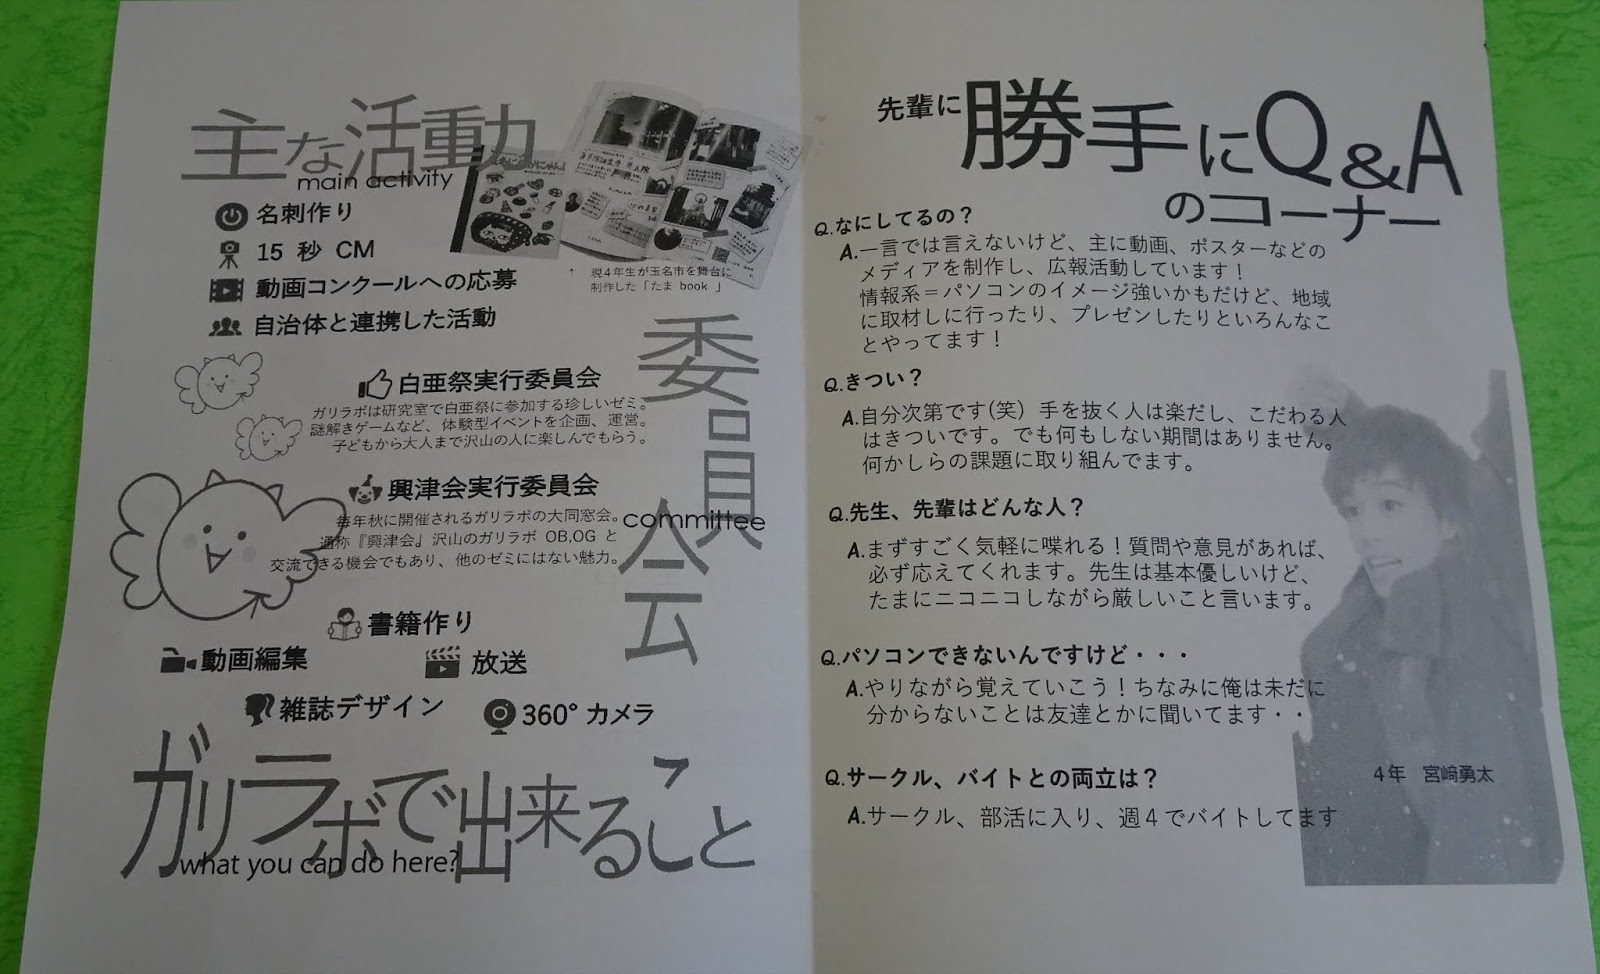 主な活動
main activity
名刺作り
15 秒 CM
動画コンクールへの応募
自治体と連携した活動
↑ 現4年生が玉名市を舞台に
制作した「たま book 」
委員会
committee
白亜祭実行委員会
ガリラボは研究室で白亜祭に参加する珍しいゼミ。
謎解きゲームなど、体験型イベントを企画、運営。
子どもから大人まで沢山の人に楽しんでもらう。
興津会実行委員会
毎年秋に開催されるガリラボの大同窓会。
通称『興津会』沢山のガリラボ OB,OG と
交流できる機会でもあり、他のゼミにはない魅力。
書籍作り
動画編集
放送
雑誌デザイン
360° カメラ
ガリラボで出来ること
what you can do here?
先輩に勝手にQ&A
のコーナー
Q.なにしてるの？
A.一言では言えないけど、主に動画、ポスターなどの
メディアを制作し、広報活動しています！
情報系＝パソコンのイメージ強いかもだけど、地域
に取材しに行ったり、プレゼンしたりといろんなこ
とやってます！
Q.きつい？
A.自分次第です(笑) 手を抜く人は楽だし、こだわる人
はきついです。でも何もしない期間はありません。
何かしらの課題に取り組んでます。
Q.先生、先輩はどんな人？
A.まずすごく気軽に喋れる！質問や意見があれば、
必ず応えてくれます。先生は基本優しいけど、
たまにニコニコしながら厳しいこと言います。
Q.パソコンできないんですけど・・・
A.やりながら覚えていこう！ちなみに俺は未だに
分からないことは友達とかに聞いてます・・
Q.サークル、バイトとの両立は？
A.サークル、部活に入り、週４でバイトしてます
４年 宮﨑勇太